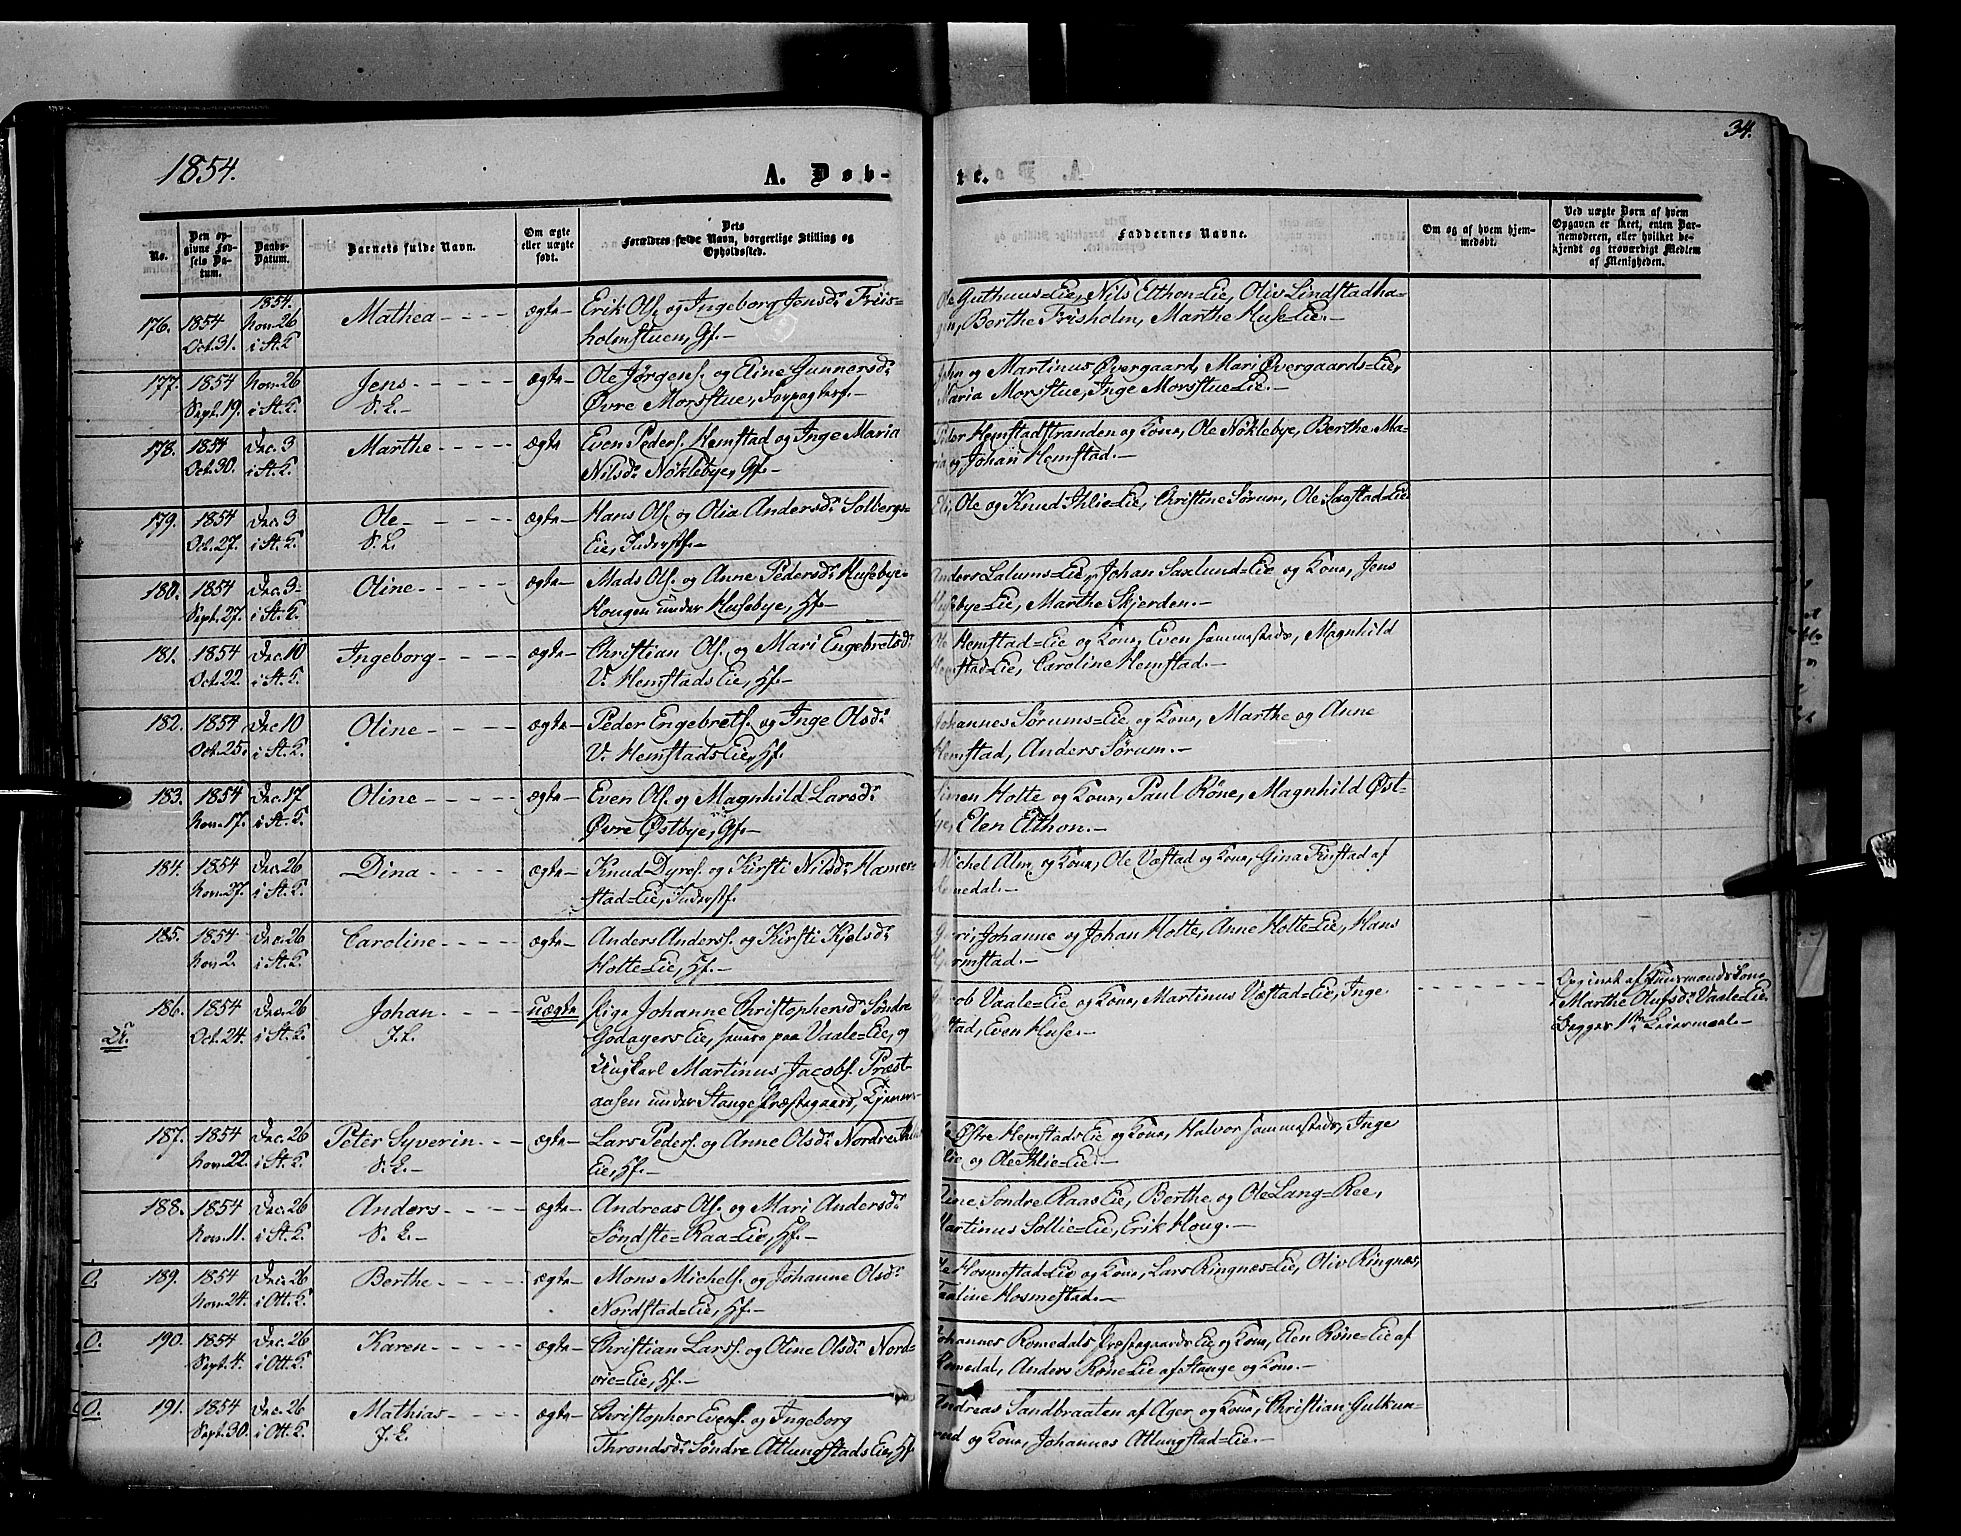 34.
1854.
A. Døb-
te.
No.
Den op-
givne Fød-
sels Da-
tum.
Daabs-
Datum.
Barnets fulde Navn.
Om ægte
eller uægte
født.
Dets
Forældres fulde Navn, borgerlige Stilling og
Opholdssted.
Faddernes Navne.
Om og af hvem hjem-
medøbt.
Ved uægte Børn af hvem
Opgaven er skeet, enten Bar-
nemoderen, eller hvilket be-
kjendt og troværdigt Medlem
af Menigheden.
176. 1854 Oct. 31. 1854. Nov. 26 i St. K. Mathea ægte
Erik Ols. og Ingeborg Jensd. Friis-
holmstuen, Gf.
Ole Guthuus=Eie, Nils Elthon=Eie, Oliv Lindstadha-
gen, Berthe Frisholm, Marthe Huse=Eie.
177. 1854 Sept. 19. Nov. 26 i St. K. Jens S. L. ægte
Ole Jørgens. og Eline Gunnersd.
Øvre Morstue, Forpagter.
John og Martinus Øvergaard, Mari Øvergaards=Eie,
Maria Morstue, Inge Morstue=Eie.
178. 1854 Oct. 30. Dec. 3 i St. K. Marthe ægte
Even Peders. Hemstad og Inge Maria
Nilsd. Nøklebye, Gf.
Peder Hemstadstranden og Kone, Ole Nøklebye, Berthe Ma-
ria og Johan Hemstad.
179. 1854 Oct. 27. Dec. 3 i St. K. Ole S. L. ægte
Hans Ols. og Olia Andersd. Solbergs=
Eie, Inderstf.
Eli, Ole og Knud Ihlie=Eie, Christine Sørum, Ole Saxstad=Eie
180. 1854 Sept. 27. Dec. 3 i St. K. Oline ægte
Mads Ols. og Anne Pedersd. Husebye-
Hougen under Husebye, Hf.
Anders Lalums=Eie, Johan Saxlund=Eie og Kone, Jens
Husebye=Eie, Marthe Skjerden.
181. 1854 Oct. 22. Dec. 10 i St. K. Ingeborg ægte
Christian Ols. og Mari Engebretsd.
V. Hemstads Eie, Hf.
Ole Hemstad=Eie og Kone, Even sammesteds, Magnhild
Hemstad=Eie, Caroline Hemstad.
182. 1854 Oct. 25. Dec. 10 i St. K. Oline ægte
Peder Engebrets. og Inge Olsd.
V. Hemstads Eie, Hf.
Johannes Sørums=Eie og Kone, Marthe og Anne
Hemstad, Anders Sørum.
183. 1854 Nov. 17. Dec. 17 i St. K. Oline ægte
Even Ols. og Magnhild Larsd.
Øvre Østbye, Gf.
Simen Holte og Kone, Paul Røne, Magnhild Øst-
bye, Elen Elthon.
184. 1854 Nov. 27. Dec. 26 i St. K. Dina ægte
Knud Dyres. og Kirsti Nilsd. Hamer-
stad=Eie, Inderstf.
Michel Alm og Kone, Ole Væstad og Kone, Gina Finstad af
Romedal.
185. 1854 Nov. 2. Dec. 26 i St. K. Caroline ægte
Anders Anders. og Kirsti Kjelsd.
Holte=Eie, Hf.
Johanne og Johan Holte, Anne Holte=Eie, Hans
Hjermstad.
186. 1854 Oct. 24. Dec. 26 i St. K. Johan J. L. uægte
Pige Johanne Christophersd. Søndre
Godagers Eie, senere paa Vaale=Eie, og
Ungkarl Martinus Jacobs. Præst-
aasen under Stange Præstegaard, Tjenere
Jacob Vaale=Eie og Kone, Martinus Væstad=Eie, Inge
Even Huse.
Opgivet af Huusmands Kone
Marthe Olufsd. Vaale=Eie.
Begges 1ste Leiermaal
187. 1854 Nov. 22. Dec. 26 i St. K. Peter Syverin S. L. ægte
Lars Peders. og Anne Olsd. Nordre
Eie, Hf.
Østre Hemstads Eie og Kone, Halvor sammesteds, Inge
Ihlie og Ole Ihlie=Eie.
188. 1854 Nov. 11. Dec. 26 i St. K. Anders S. L. ægte
Andreas Ols. og Mari Andersd.
Søndste=Raa=Eie, Hf.
Søndre Raas Eie, Berthe og Ole Lang=Ree,
Martinus Sollie=Eie, Erik Houg.
O. 189. 1854 Nov. 24. Dec. 26 i Ott. K. Berthe ægte
Mons Michels. og Johanne Olsd.
Nordstad=Eie, Hf.
Ole Hosmestad=Eie og Kone, Lars Ringnes=Eie, Oliv Ringnes,
Hosmestad.
O. 190. 1854 Sept. 4. Dec. 26 i Ott. K. Karen ægte
Christian Larss. og Oline Olsd. Nord-
vie=Eie, Hf.
Johannes Romedals Præstegaards Eie og Kone, Elen Røne=Eie af
Romedal, Anders Røne=Eie af Stange og Kone.
O. 191. 1854 Sept. 30. Dec. 26 i Ott. K. Mathias J. L. ægte
Christopher Evens. og Ingeborg
Throndsd. Søndre Atlungstads Eie, Hf.
Andreas Sandbraaten af Ager og Kone, Christian Gulkun-
rud og Kone, Johannes Atlungstad=Eie.